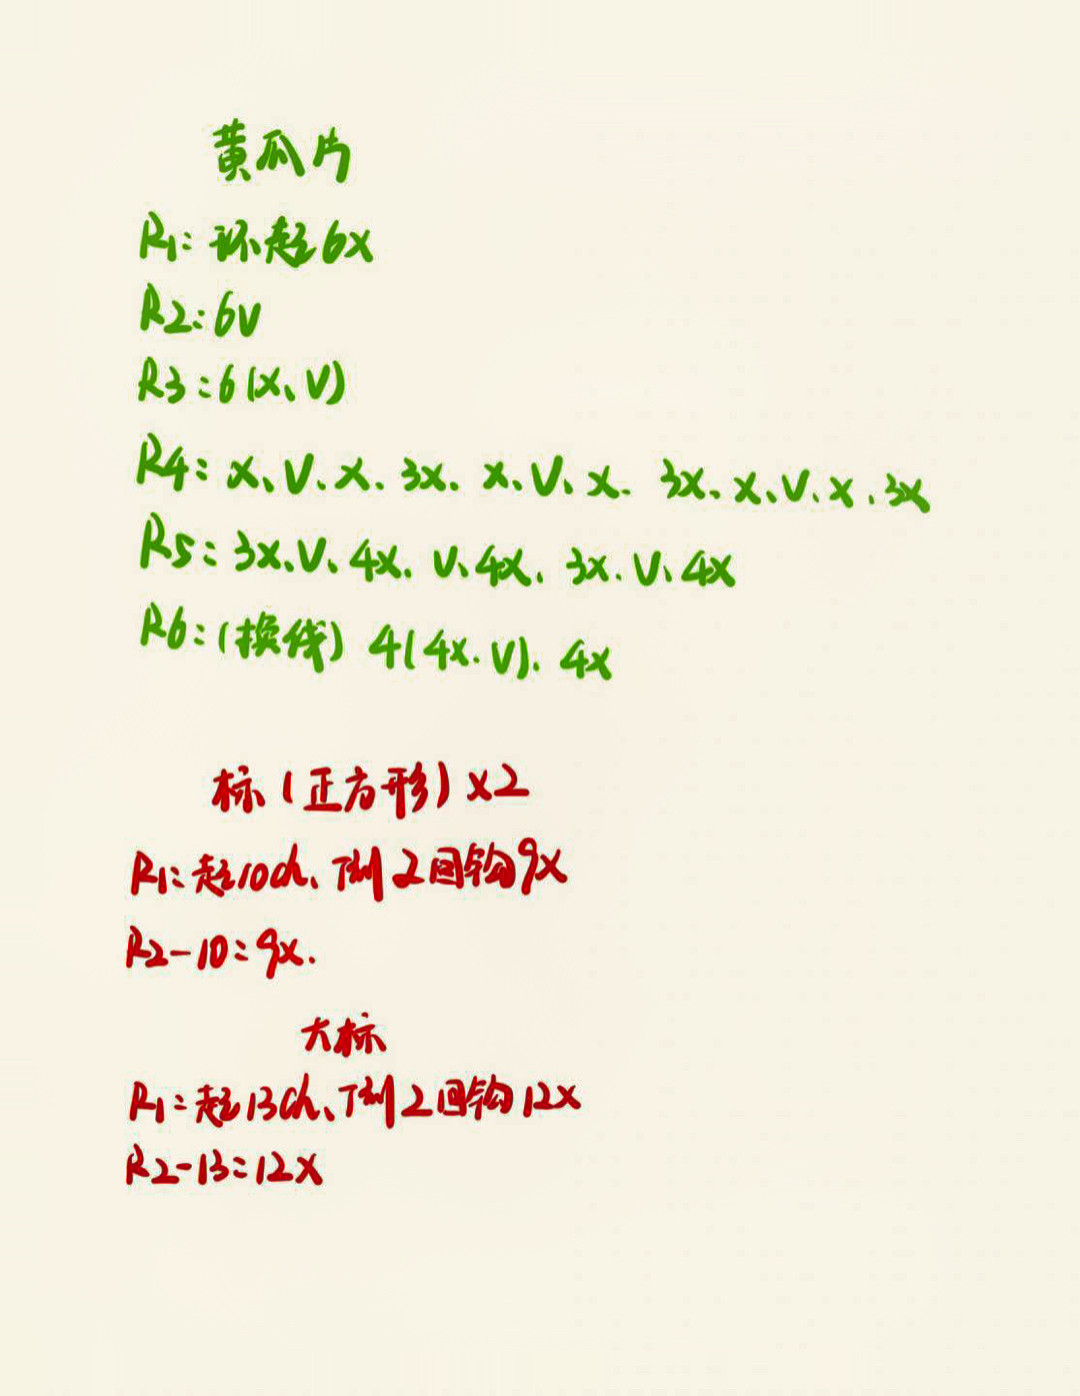 黄瓜片
R1:环起6x
R2:6V
R3:6(x、V)
R4:x、V、x、3x、x、V、x、3x、x、V、x、3x
R5:3x、V、4x、V、4x、3x、V、4x
R6:(换线)4(4x、V)、4x
标(正方形)x2
R1:起10ch、倒2回钩9x
R2-10:9x.
大标
R1:起13ch、倒2回钩12x
R2-13:12x